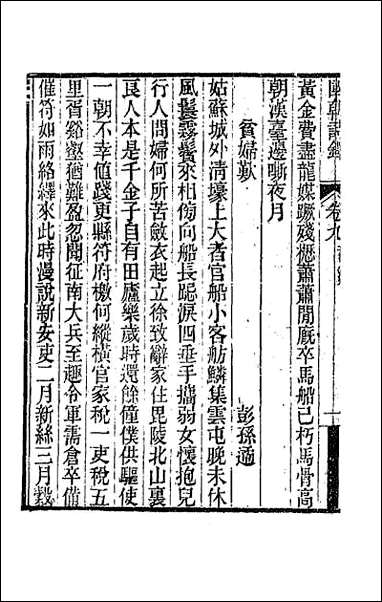 國朝詩鐸 卷九
黃金費盡龍媒蹶殘櫪蕭蕭閒厩卒馬船已朽馬骨高
朝漢臺邊嘶夜月
貧婦歎 彭孫遹
姑蘇城外清壕上大者官船小客舫鱗集雲屯晚未休
風鬟霧鬢來相傍向船長跽淚四垂手攜弱女懷抱兒
行人問婦何所苦斂衣起立徐致辭家住毘陵北山裏
良人本是千金子自有田廬樂歲時還餘僮僕供驅使
一朝不幸値踐更縣符府檄何縱橫官家稅一吏稅五
里胥谿壑猶難盈忽聞征南大兵至趣令軍需倉卒備
催符如雨絡繹來此時漫說新安吏二月新絲三月穀